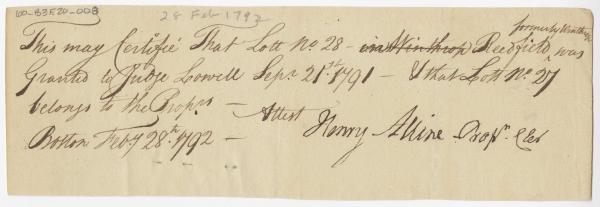 100-B3F20-008
28 Feb 1792
formerly Winthrop
This may Certifie That Lott No 28 - in Winthrop Reedfield, was
Granted to Judge Lowell Sepr 21st 1791 - & that Lott No 27
belongs to the Proprs - Attest
Boston Feby 28th 1792 - Henry Alline Propr Cler